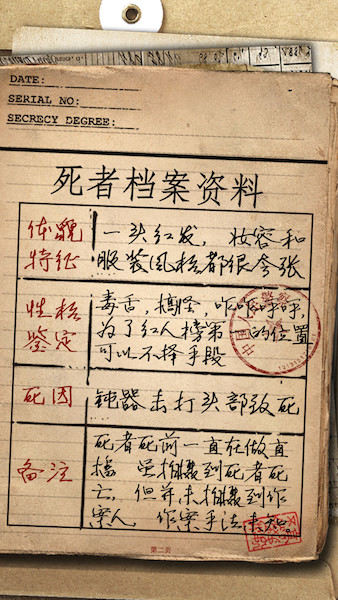 DATE:
SERIAL NO:
SECRECY DEGREE:
死者档案资料
体貌
特征
一头红发，妆容和
服装风格都很夸张
性格
鉴定
毒舌，搞怪，咋咋呼呼，
为了红人榜第一的位置
可以不择手段
死因
钝器击打头部致死
备注
死者死前一直在做直
播 虽拍摄到死者死
亡，但并未拍摄到作
案人 作案手法未知
第二页